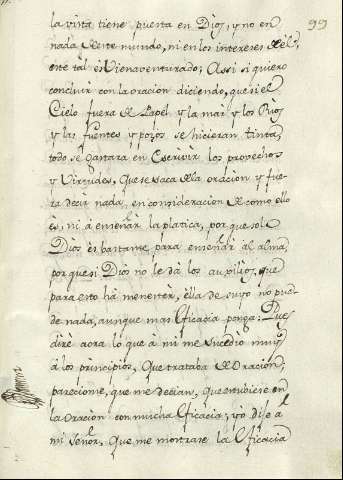 99
la vista tiene puesta en Dios, y no en
nada de este mundo, ni en los intereses de el,
este tal es Vienaventurado; Assi si quiero
concluir con la oracion diciendo, que si el
Cielo fuera de Papel y la mar y los Rios
y las fuentes y pozos se hicieran tinta,
todo se gantara en Escrivir los provechos
y Virtudes, Que se saca de la oracion y fue-
ra decir nada, en consideracion de como ello
es, ni à enseñar la platica, porque solo
Dios es bantante para enseñar al alma,
porque si Dios no le dà los auxilios, que
para esto hà menester, èlla de suyo no pue-
de nada, aunque mas Eficacia ponga: Pues
dirè aora lo que à mi me sucedio muy
à los principios, Que trataba de Oracion,
pareciome, que me decian, Que estubiese en
la Oracion con mucha Eficacia; yo dije à
mi Señor, Que me mostrase la Eficacia